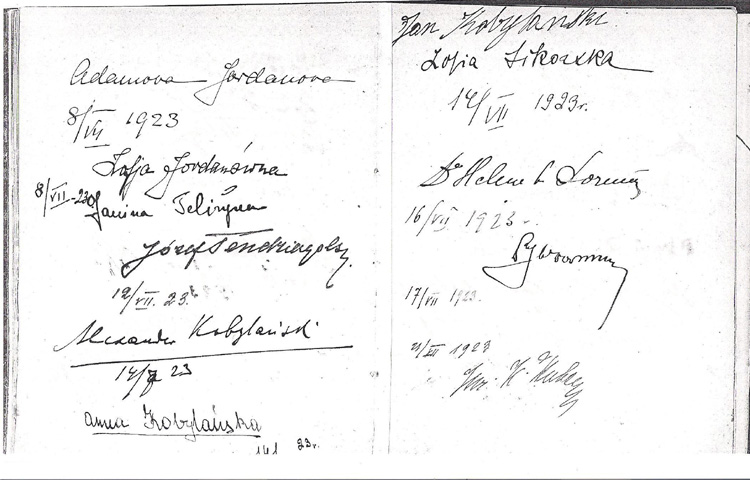 Adamowa Jordanowa
8/VII 1923
Zofja Jordanówna
8/VII-23
Janina
Józef
12/VII. 23.
Alexander Kobylański
14/7 23
Anna Kobylańska
23r.
Jan Kobylański
Zofia Sikorska
14/VII 1923r.
Dr Helene Lorenz
16/VII 1923.
17/VII 1923.
1923